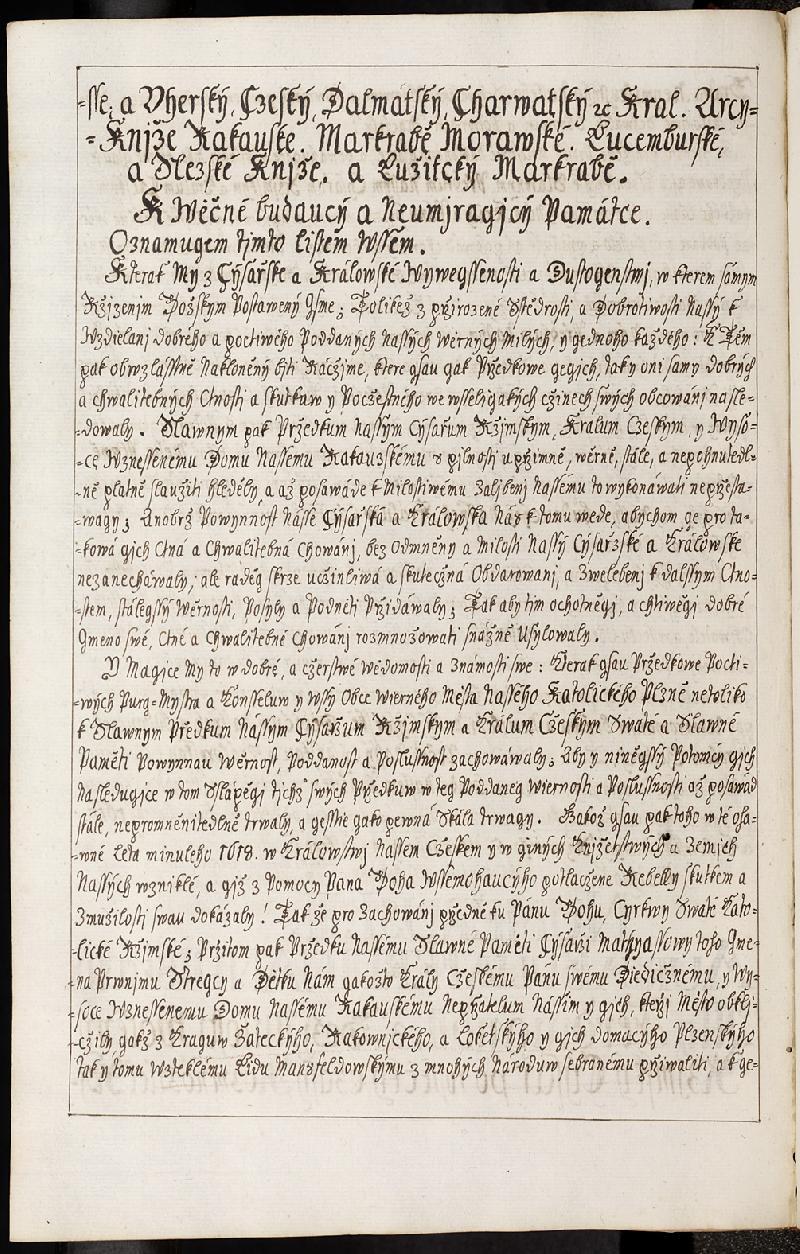 -sse, a Vherský, Cżeský, Dalmátský, Charwatský ꝛc Kral. Arcy=
=Knjže Rakauské. Markrabě Morawské. Lucemburské,
a Slezské Knjže. a Lužitcký Markrabě.
K Wěčné budaucý a Neumjragjcý Památce.
Oznamugem tjmto listem Wssem.
Kterak My z Cýsařske a Králowské Wywegssenosti a Dustogenstwj, w kterem samym
Ržjzenjm Božským Postawený gsme; Tolikéž z přirozené Sstědrosti, a Dobrotiwosti Nassý k
Wzdielanj dobrého a poctiwého Poddaných Nassých Werných Milých, y gednoho každého: K Těm
pak obwzlasstně Nakloněný býti Ráčzjme, ktere gsau gak Pržedkowe gegjch, taky oni samy dobrých
a chwalitebných Ctnosti a skutkuw y Poczestného we wsseligakých cžinech swých obcowánj nasle=
=dowaly. Slawnym pak Pržedkum Nassým Cýsařum Ržjmskym, Kralum Czeskym, y Wyso=
=ce Wznessenému Domu Nassemu Rakauzskému s pilnosti upržimné, wěrně, stále, a nepohnutedl=
=ně platně slaužiti hleděly, a až posawáde k Milostiwému Zaljbenj Nassému to wykonáwati nepřesta=
=wagj; Anobrž Powynnost Násse Cýsařská a Králowska Nás k tomu wede, abychom ge pro ta=
=kowá gich Ctná a Chwalitebná Chowánj, bez Odměny a Milosti Nassý Cýsařzské a Králowske
nezanechawaly; ale raděg skrze ucžinliwá a skutecžná Obdarowanj, a Zwelebenj k dalssým Ctno=
=stem, stálegssý Wěrnosti, Pohyby a Podněti Pržidáwaly; Tak aby tim ochotněgi, a chtiwěgi dobré
Gmeno swé, Ctné a Chwalitebné Chowánj rozmnožowati snážně Usylowaly.
Y Magice My to w dobré, a cžerstwé Wědomosti a Známosti swe: Kterak gsau Pržedkowe Pocti=
=wých Purg-Mystra a Konsseluw y wssý Obce Wierného Města Nasseho Katolického Plzně netoliko
k Slawnym Předkum Nássým Cýsaržum Ržjmskym a Králum Cžeským Swaté a Slawné
Paměti Powynnau Wěrnost, Poddanost a Poslussnost zachowáwaly; Aby y niněgssý Potomcy gich
Nasledugjce w tom Sslápěgi tichž swých Pržedkuw w teg Poddaneg Wiernosti a Poslussnosti až posawad
stále, nepromněnitedlně trwaly, a gesstie gako pewná Skála trwagy. Gakož gsau pak toho w té osa=
=wné Leta minulého 1618. w Králowstwj Nassem Cžeskem y w giných Knjžetstwých a Zemjch
Nassých wzniklé, a gjž z Pomocy Pana Boha Wssemohaucýho potlačzene Rebelly skutkem a
Zmužilosti swau dokázaly! Tak že pro Zachowánj pržedně ku Pánu Bohu, Cyrkwy Swaté Káto=
=lické Ržjmské; Pržitom pak Pržedku Nassému Slawné Paměti Cýsařži Mathyassowy toho Gme=
=na Prwnjmu Streycy a Dětku Nám gakožto Krály Cžeskému Panu swému Diedičznému, y Wy=
=soce Wznessenemu Domu Nassému Rakauskému Nepržatelum Nássim y gich, kteržj Město oblehj=
=cžily gakž z Kraguw Žateckýho, Rakownjckého, a Loketskýho y gich domacýho Plzenskýho
tak y tomu Wzteklému Lidu Mansfeldowskýmu z mnohých Národuw sebranému pržiwaliti, a k ge=